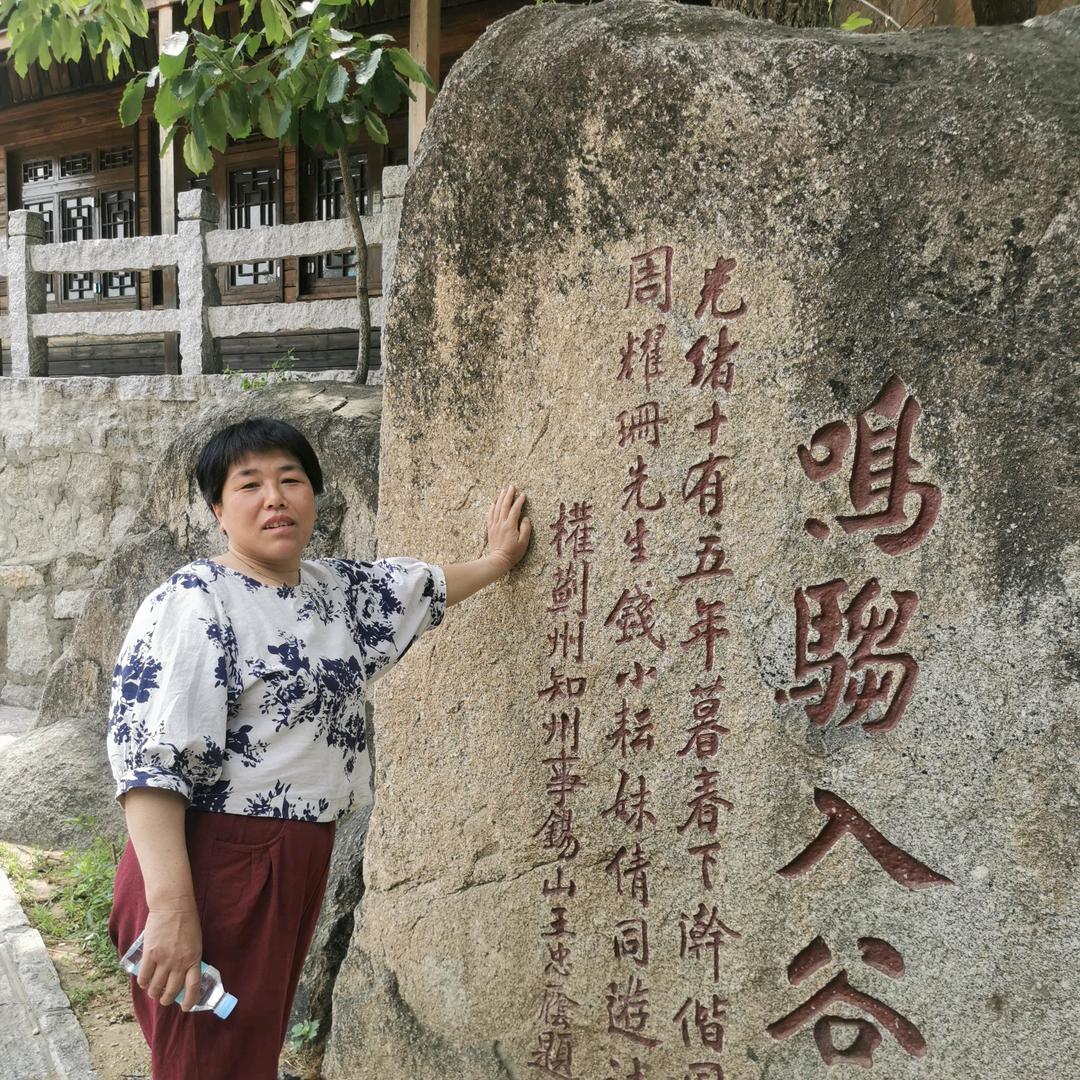 鳴騶入谷
光绪十有五年暮春下澣偕
周耀珊先生錢小耘妹倩同遊
權薊州知州事錫山王忠廕題